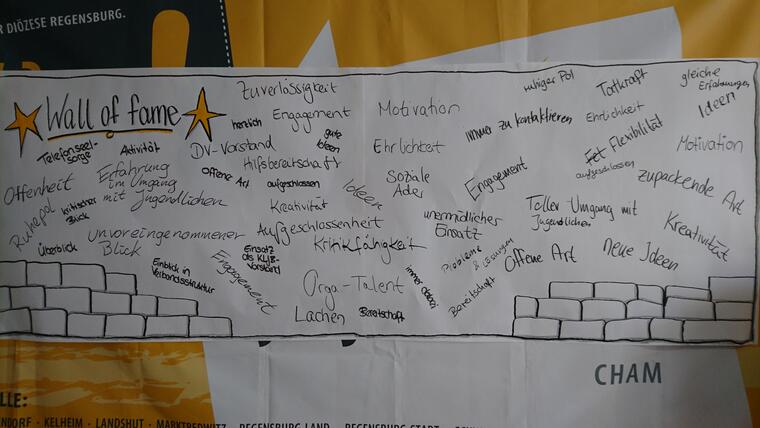 R DIÖZESE REGENSBURG.
Wall of fame
Zuverlässigkeit
herzlich
Engagement
gute
Ideen
Motivation
ruhiger Pol
Tatkraft
gleiche
Erfahrungen
Ideen
immer zu kontaktieren
Ehrlichkeit
Telefonseel-
sorge
Aktivität
DV-Vorstand
Hilfsbereitschaft
Ehrlichkeit
Fet Flexibilität
aufgeschlossen
Motivation
Offenheit
Erfahrung
im Umgang
mit Jugendlichen
offene Art
aufgeschlossen
Ideen
Soziale
Ader
Engagement
zupackende Art
Ruhepol
kritischer
Blick
Kreativität
Toller Umgang mit
Jugendlichen
Aufgeschlossenheit
unermüdlicher
Einsatz
Kreativität
Überblick
unvoreingenommener
Blick
Einsatz
als KLJB-
Vorstand
Kritikfähigkeit
Probleme
& Lösungen
Offene Art
neue Ideen
Einblick in
Verbandsstruktur
Engagement
Orga-Talent
immer dabei
Bereitschaft
Lachen
Bereitschaft
CHAM
LLE:
NDORF · KELHEIM · LANDSHUT · MARKTREDWITZ · REGENSBURG LAND · REGENSBURG STADT ·